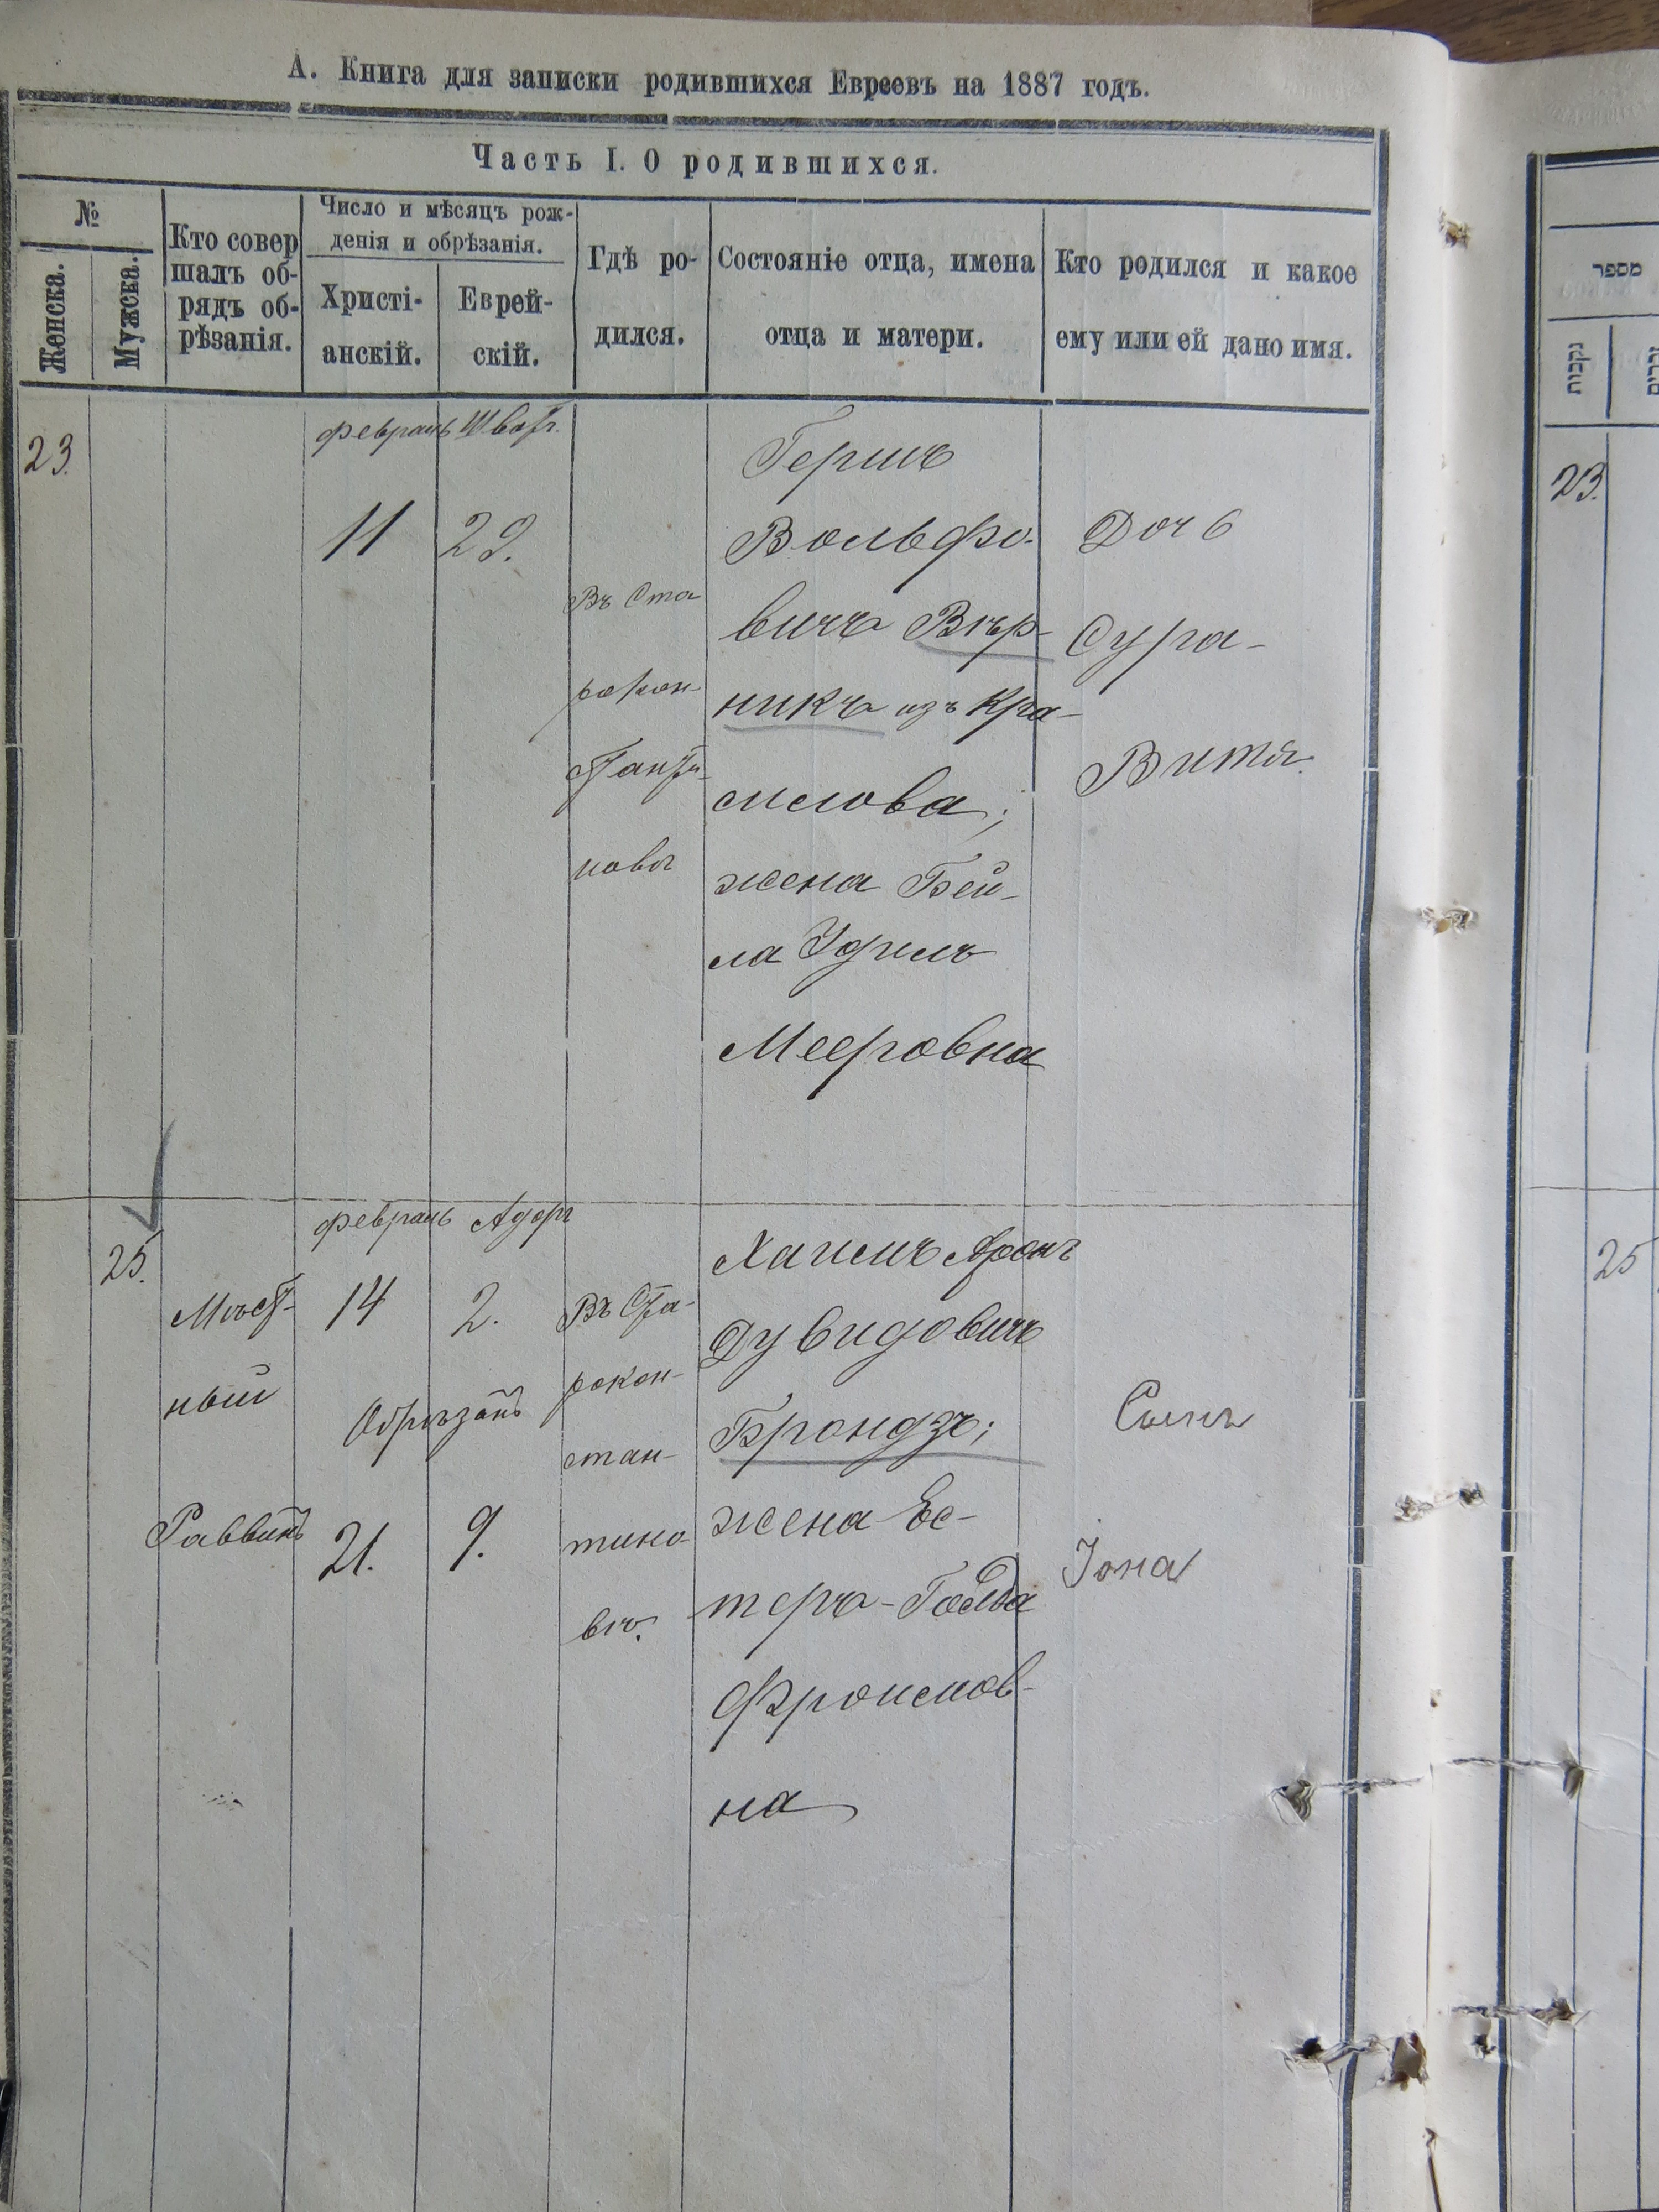 А. Книга для записки родившихся Евреевъ на 1887 годъ.
Часть I. О родившихся.
№
Женска.
Мужска.
Кто совер
шалъ об-
рядъ об-
рѣзанія.
Число и мѣсяцъ рож-
денія и обрѣзанія.
Христі-
анскій.
Еврей-
скій.
Гдѣ ро-
дился.
Состояніе отца, имена
отца и матери.
Кто родился и какое
ему или ей дано имя.
23.
февраль
Шватъ
11
29.
Въ Ста
рокон-
станти-
новѣ
Гершъ
Вольфо-
вичъ Вѣр-
никъ изъ Кра-
силова;
жена Бей-
ла Удиль
Мееровна
Дочь
Сура-
Витя.
25.
Мѣст-
ный
Раввинъ
февраль
Адаръ
14
2.
Обрѣзанъ
21.
9.
Въ Ста-
рокон-
стан-
тино-
вѣ.
Хаимъ Аронъ
Дувидовичъ
Брондзъ;
жена Ес-
теръ-Голда
Фроимов-
на
Сынъ
Іона
מספר
נקבות
זכרים
23.
25